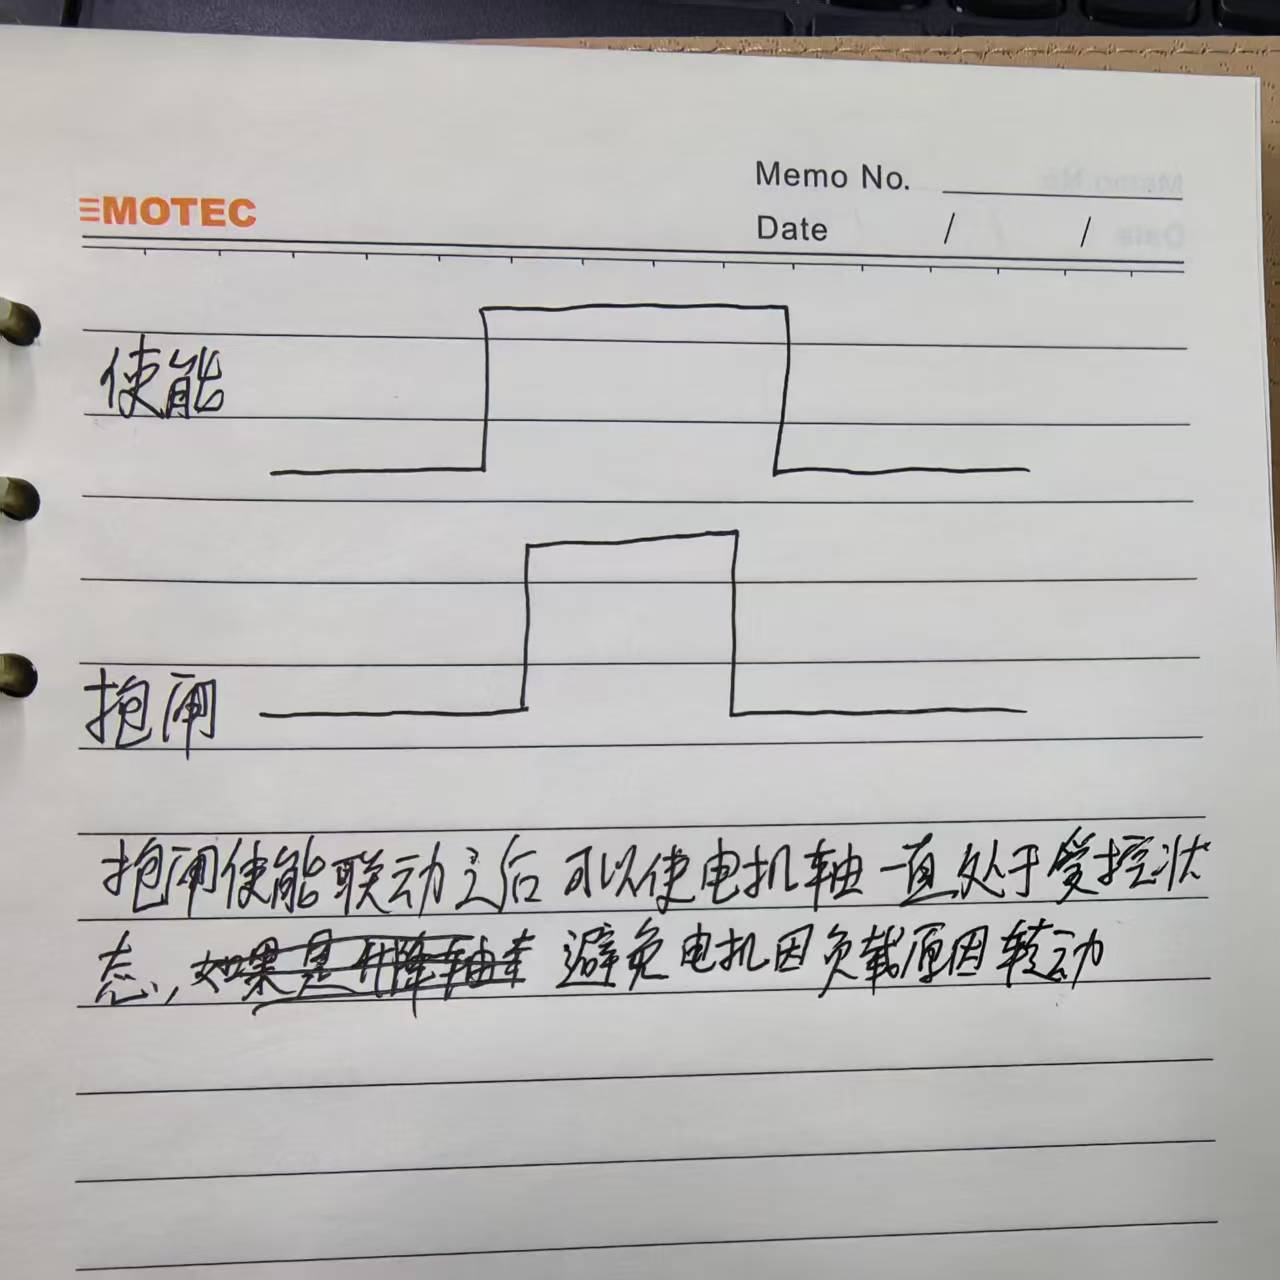 MOTEC
Memo No.
Date / /
使能
抱闸
抱闸使能联动之后可以使电机轴一直处于受控状
态，如果是升降轴 避免电机因负载原因转动